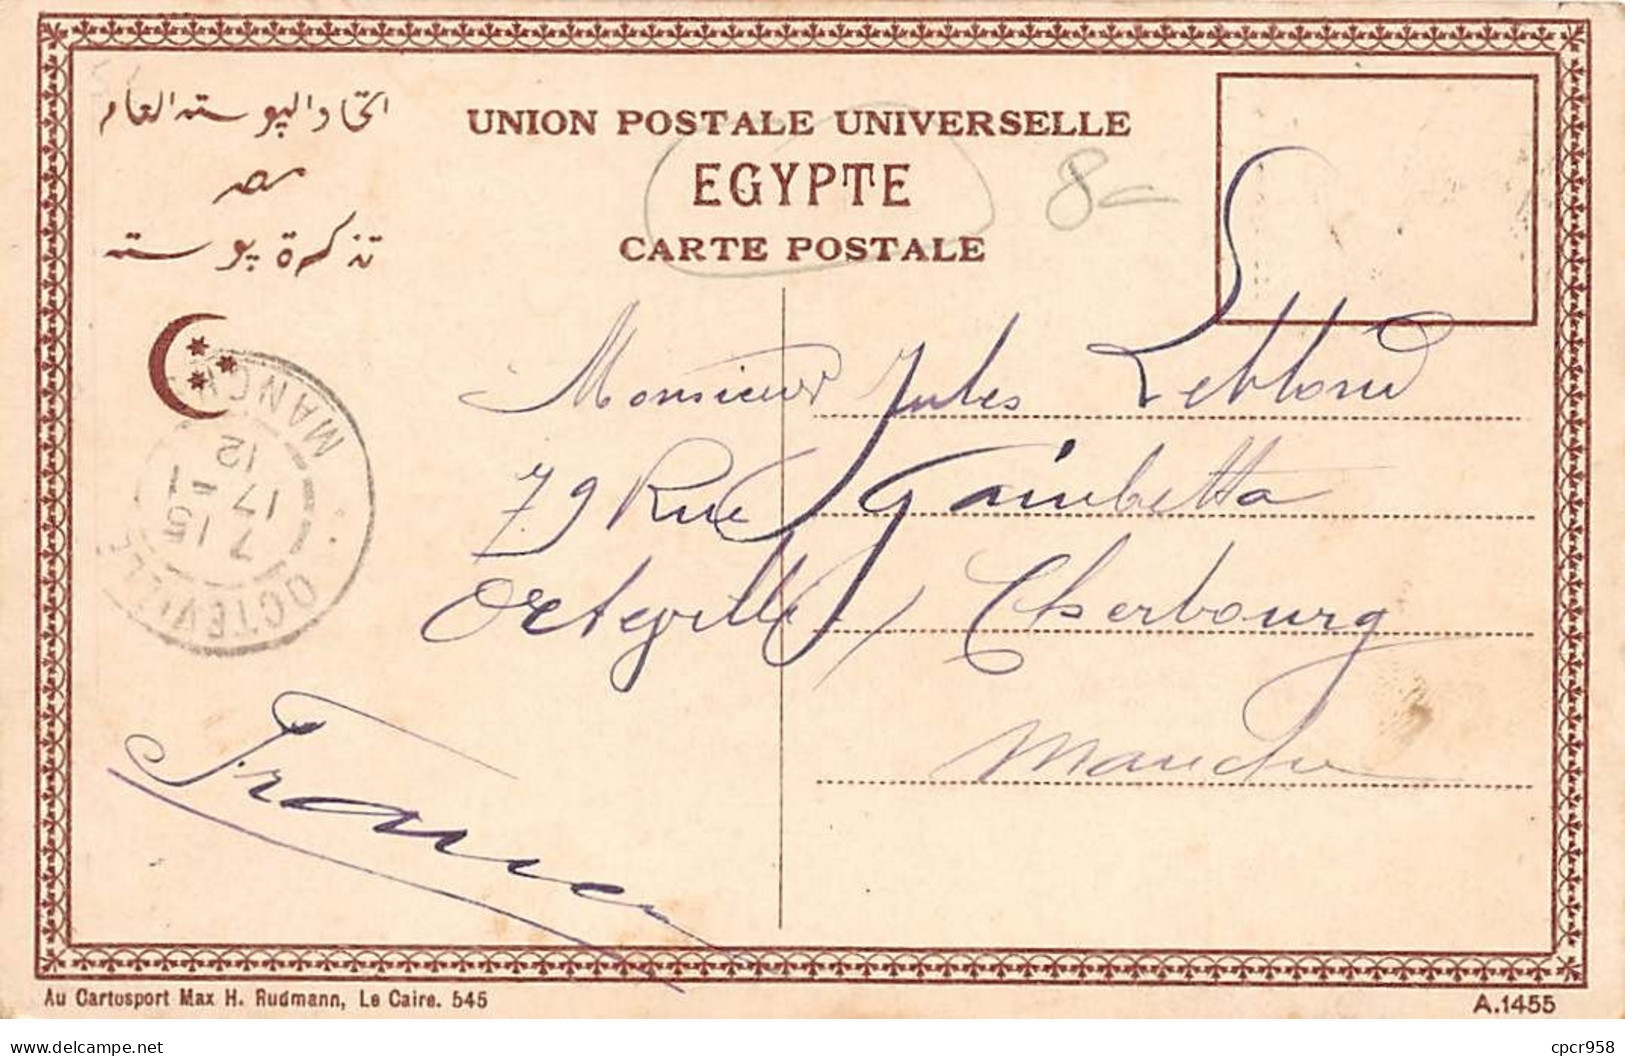 اتحاد البوسته العام
مصر
تذكرة بوسته
UNION POSTALE UNIVERSELLE
EGYPTE
CARTE POSTALE
8€
Monsieur Jules Leblond
79 Rue Gambetta
Octeville / Cherbourg
Manche
France
OCTEVILLE
MANCHE
7 15
17 - 1
12
Au Cartosport Max H. Rudmann, Le Caire. 545
A.1455
delcampe.net
cpcr958